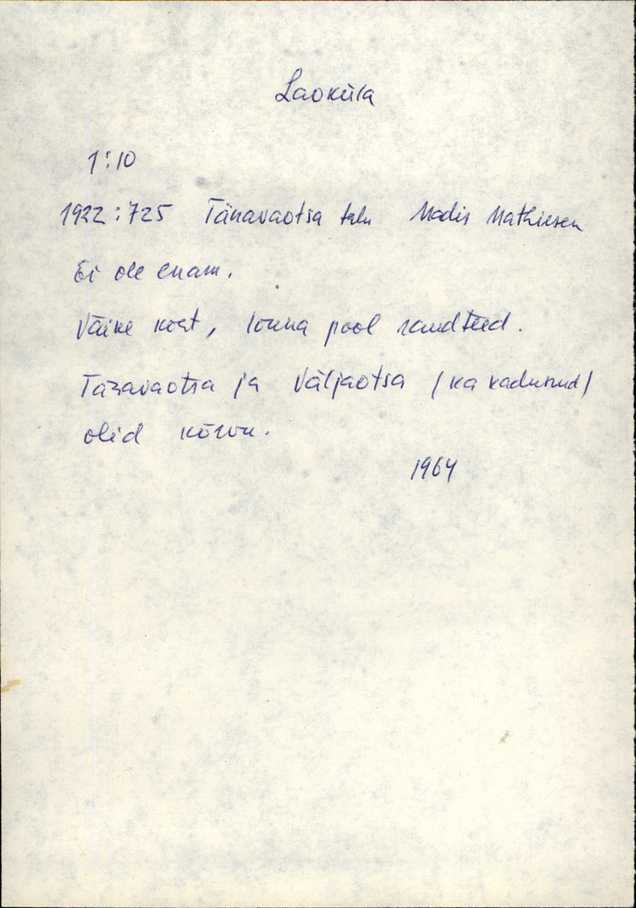 Laoküla
1:10
1922:725 Tänavaotsa talu Madis Mathiesen
Ei ole enam.
Väike koht, lõuna pool raudteed.
Tänavaotsa ja Väljaotsa (ka kadunud)
olid kõrvu.
1964